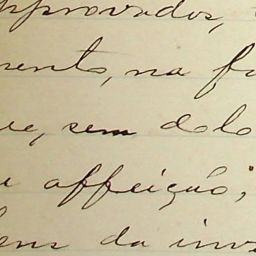 approvados,
mento, na fo
ue, sem dolo
a affeição;
bens da inv